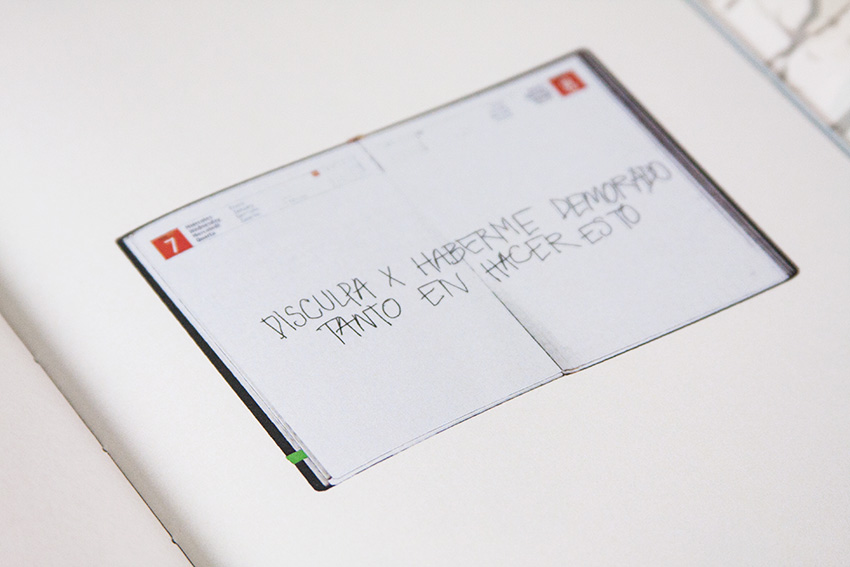 7
8
DISCULPA X HABERME DEMORADO
TANTO EN HACER ESTO